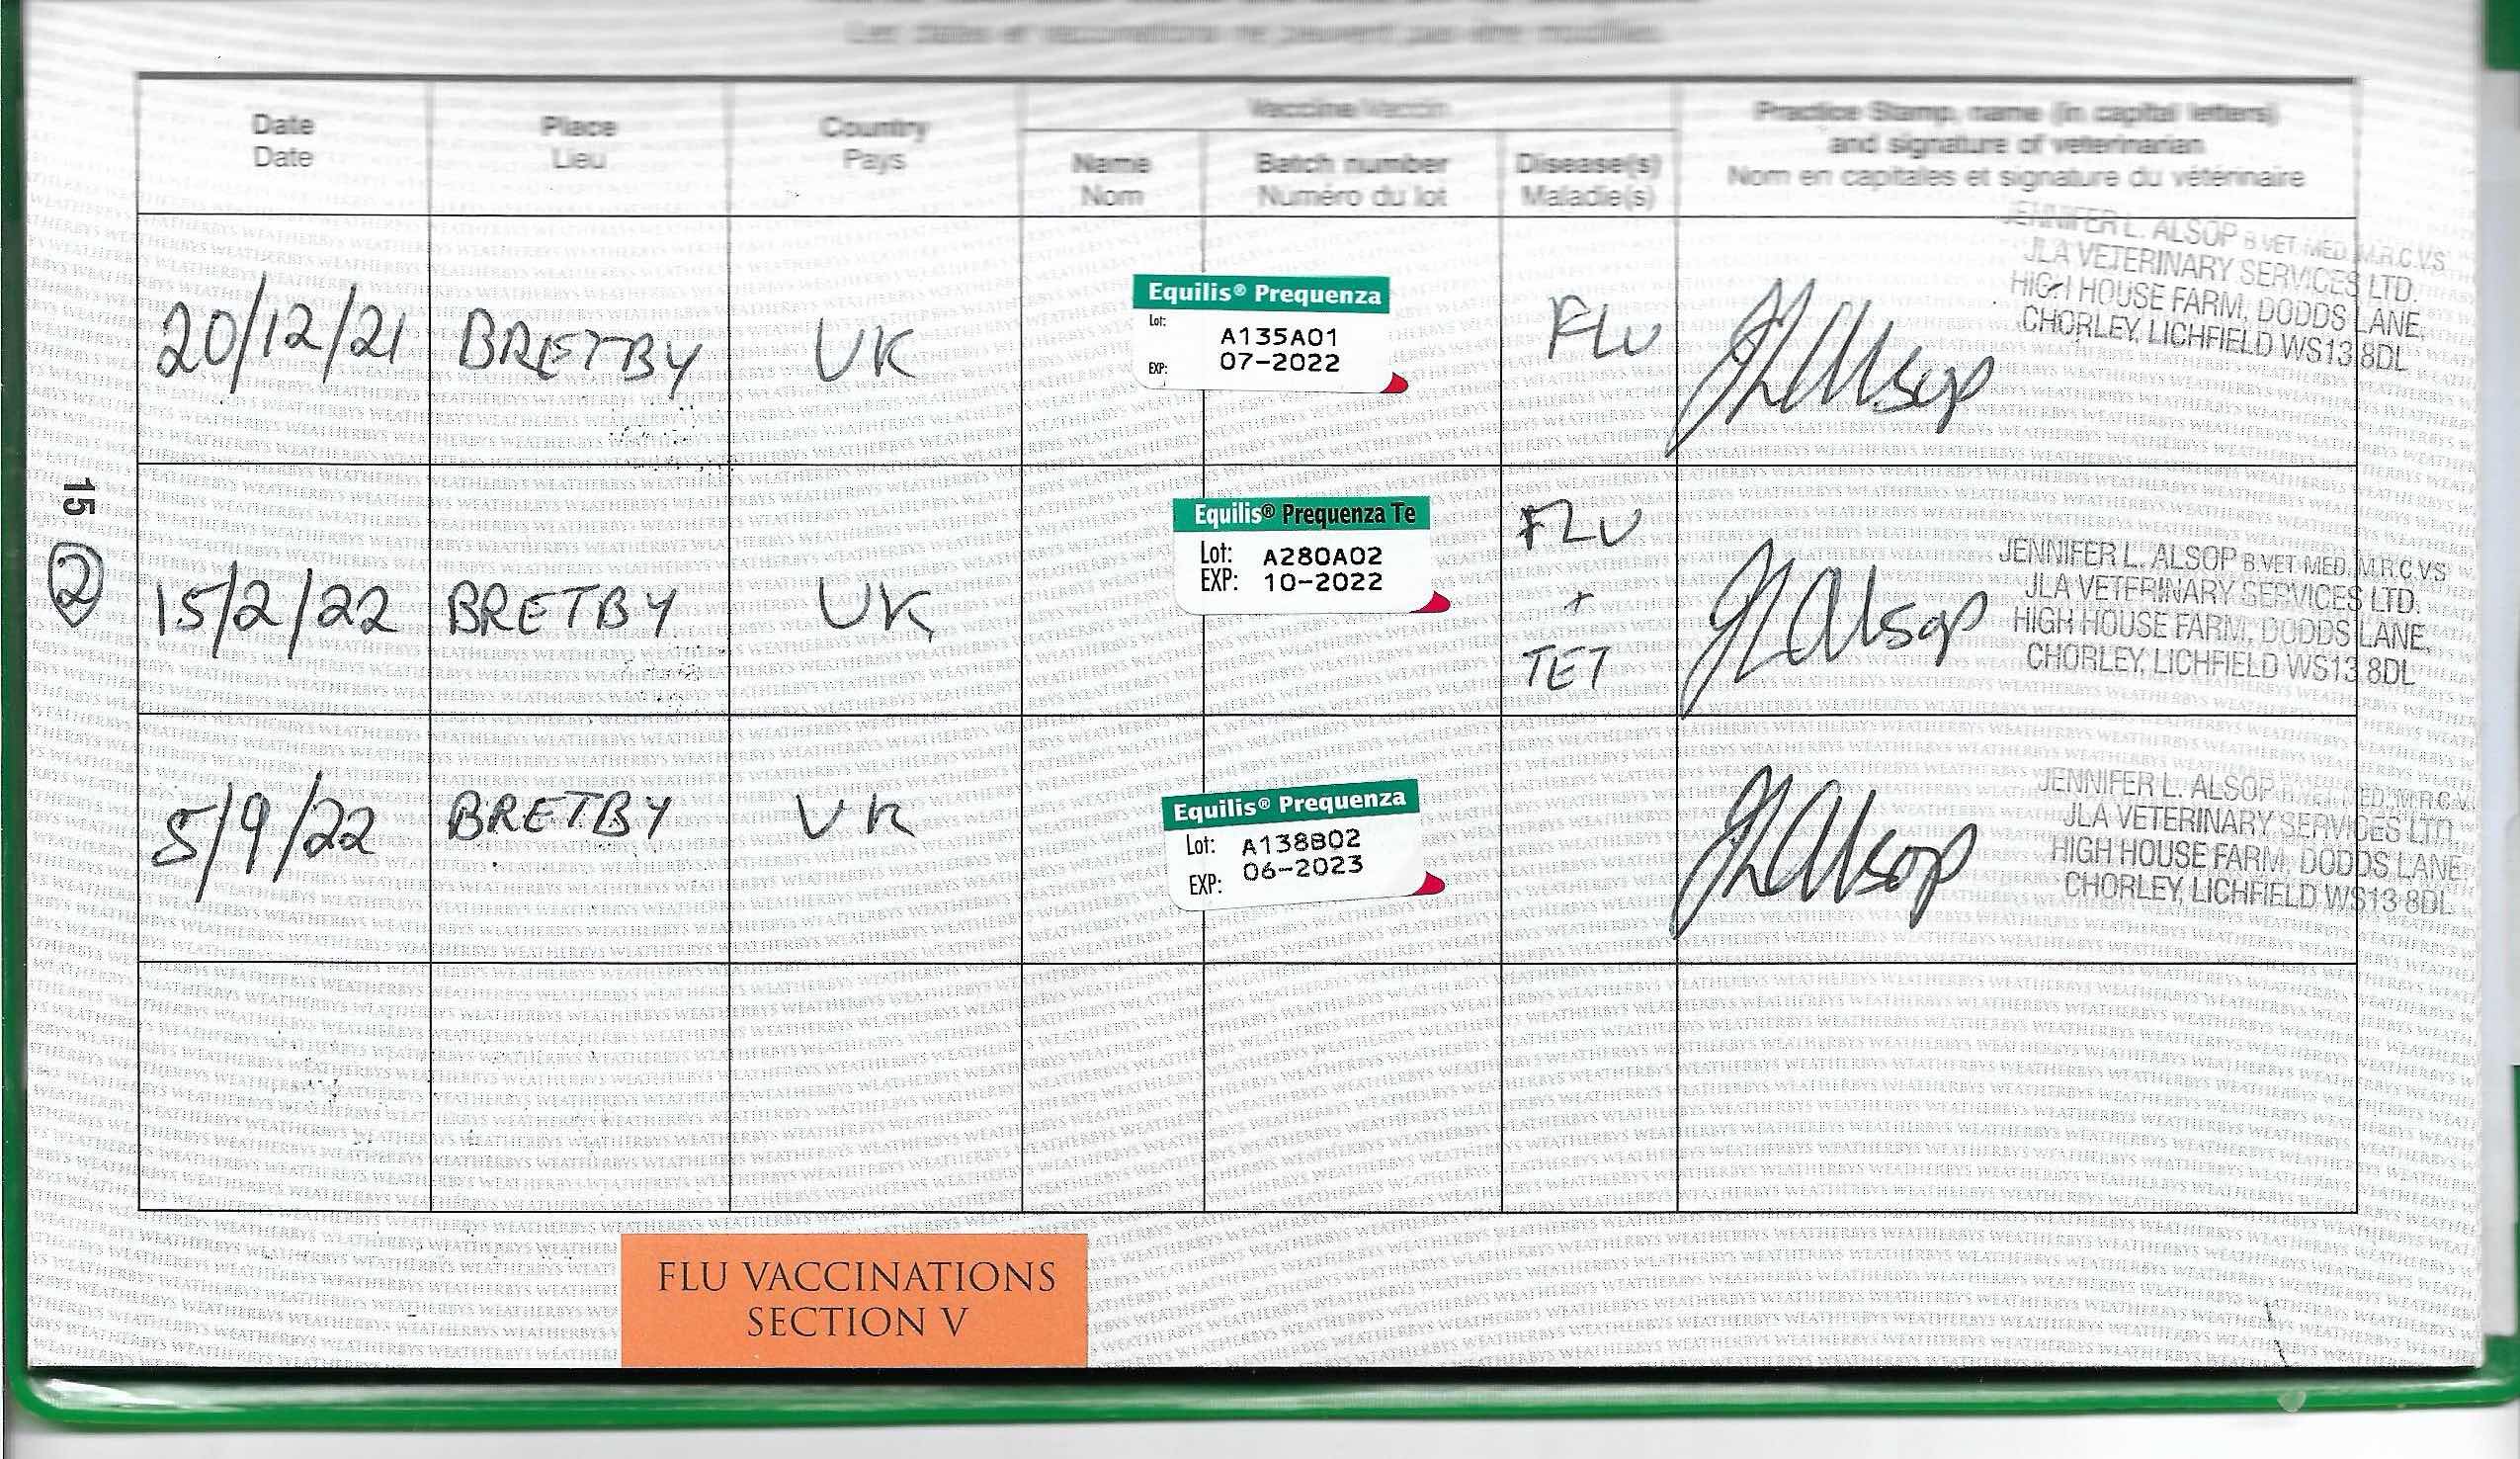 Les dates et vaccinations ne peuvent pas être modifiées.
Date
Date
Place
Lieu
Country
Pays
Vaccine/Vaccin
Name
Nom
Batch number
Numéro du lot
Disease(s)
Maladie(s)
Practice Stamp, name (in capital letters)
and signature of veterinarian
Nom en capitales et signature du vétérinaire
20/12/21 BRETBY UK
Equilis® Prequenza
Lot: A135A01
EXP: 07-2022
FLU
JLAlsop
JENNIFER L. ALSOP B.VET.MED.M.R.C.V.S
JLA VETERINARY SERVICES LTD.
HIGH HOUSE FARM, DODDS LANE,
CHORLEY, LICHFIELD WS13 8DL
15
2
15/2/22 BRETBY UK
Equilis® Prequenza Te
Lot: A280A02
EXP: 10-2022
FLU
+
TET
JLAlsop
JENNIFER L. ALSOP B.VET.MED.M.R.C.V.S
JLA VETERINARY SERVICES LTD.
HIGH HOUSE FARM, DODDS LANE,
CHORLEY, LICHFIELD WS13 8DL
5/9/22 BRETBY UK
Equilis® Prequenza
Lot: A138B02
EXP: 06-2023
JLAlsop
JENNIFER L. ALSOP B.VET.MED.M.R.C.V.
JLA VETERINARY SERVICES LTD.
HIGH HOUSE FARM, DODDS LANE,
CHORLEY, LICHFIELD WS13 8DL
FLU VACCINATIONS
SECTION V